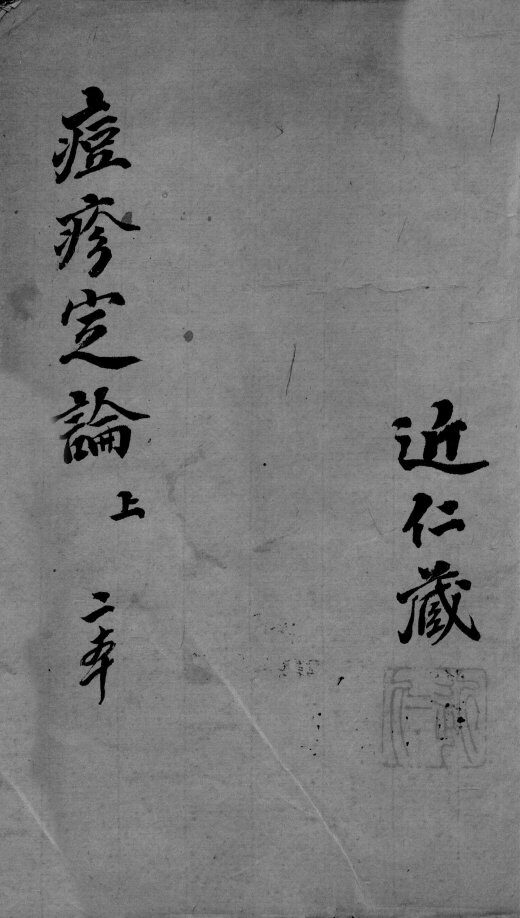 近仁藏
痘疹定論 上 二本